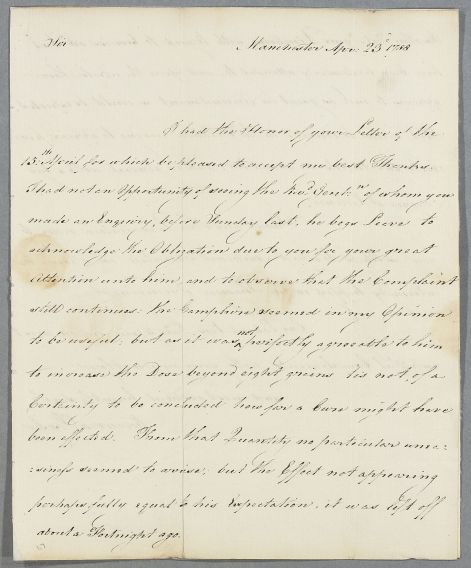 Sir Manchester Apr. 23d 1788
I had the Honor of your Letter of the
15th April for which be pleased to accept my best Thanks.
I had not an Opportunity of seeing the Revd. Gentn. of whom you
made an Enquiry, before Sunday last, he begs Leave to
acknowledge the Obligation due to you for your great
Attention unto him, and to observe that the Complaint
still continues. The Camphire seemed in my Opinion
to be useful; but as it was not perfectly agreeable to him
to increase the Dose beyond eight grains tis not of a
Certainty to be concluded how far a Cure might have
been effected. From that Quantity no particular unea-
-siness seemed to arise; but the Effect not appearing
perhaps fully equal to his Expectation, it was left off
about a Fortnight ago.